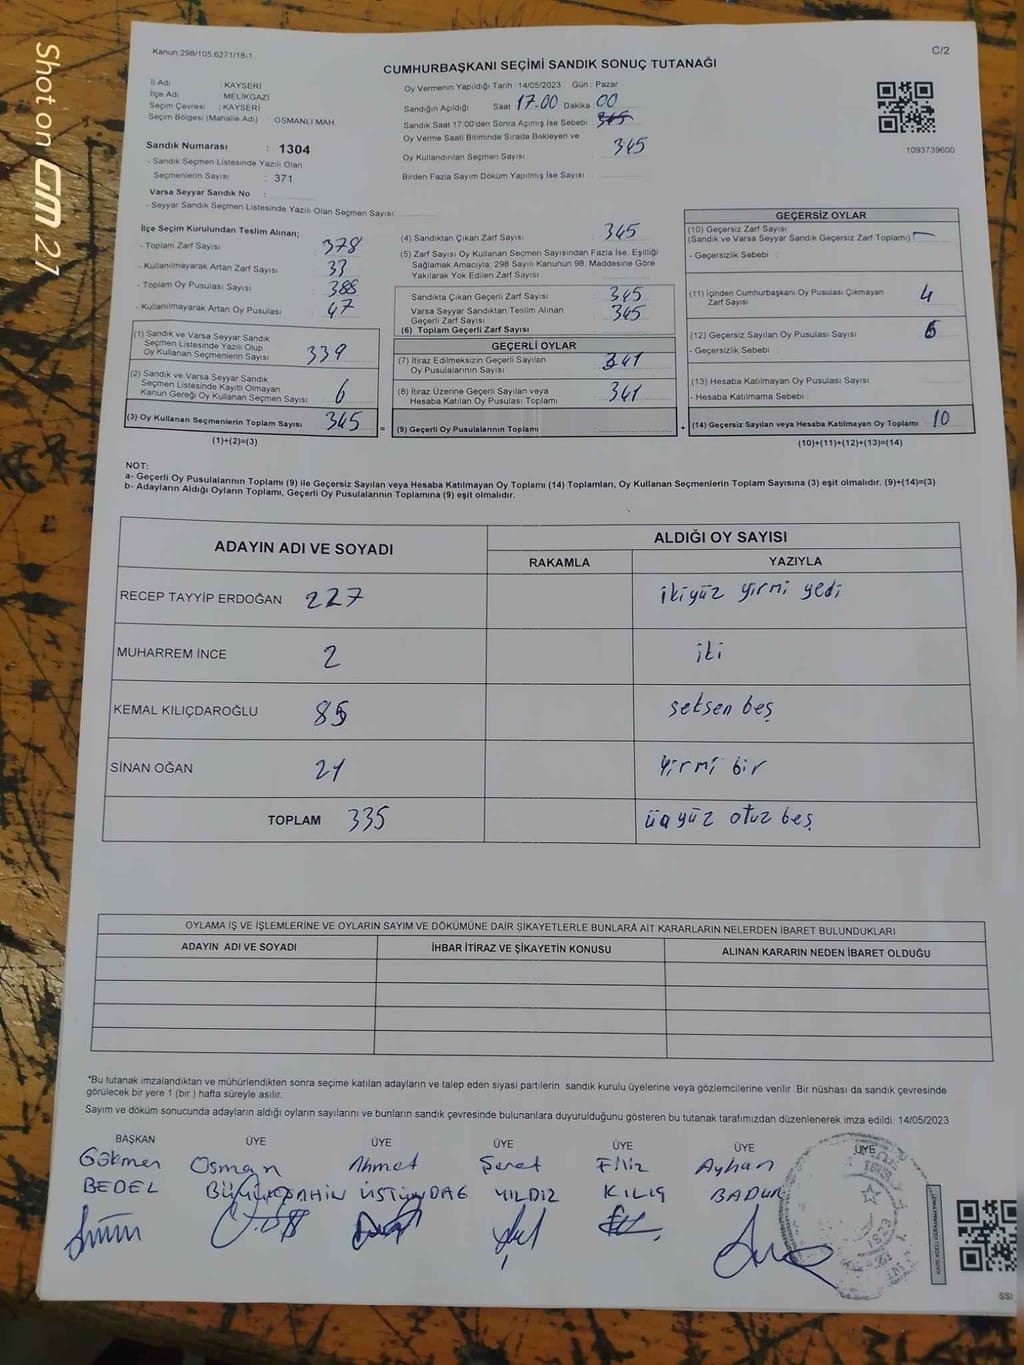 Shot on GM 21
Kanun:298/105,6271/18-1
C/2
CUMHURBAŞKANI SEÇİMİ SANDIK SONUÇ TUTANAĞI
İl Adı : KAYSERİ
İlçe Adı : MELİKGAZİ
Seçim Çevresi : KAYSERİ
Seçim Bölgesi (Mahalle Adı) : OSMANLI MAH.
Sandık Numarası : 1304
- Sandık Seçmen Listesinde Yazılı Olan
Seçmenlerin Sayısı : 371
Varsa Seyyar Sandık No :
- Seyyar Sandık Seçmen Listesinde Yazılı Olan Seçmen Sayısı:
Oy Vermenin Yapıldığı Tarih : 14/05/2023 Gün : Pazar
Sandığın Açıldığı Saat 17.00 Dakika 00
Sandık Saat 17.00'den Sonra Açılmış İse Sebebi : 345
Oy Verme Saati Bitiminde Sırada Bekleyen ve
Oy Kullandırılan Seçmen Sayısı : 345
Birden Fazla Sayım Döküm Yapılmış İse Sayısı :
1093739600
İlçe Seçim Kurulundan Teslim Alınan;
- Toplam Zarf Sayısı : 378
- Kullanılmayarak Artan Zarf Sayısı : 33
- Toplam Oy Pusulası Sayısı : 388
- Kullanılmayarak Artan Oy Pusulası : 47
(1) Sandık ve Varsa Seyyar Sandık
Seçmen Listesinde Yazılı Olup
Oy Kullanan Seçmenlerin Sayısı : 339
(2) Sandık ve Varsa Seyyar Sandık
Seçmen Listesinde Kayıtlı Olmayan
Kanun Gereği Oy Kullanan Seçmen Sayısı : 6
(3) Oy Kullanan Seçmenlerin Toplam Sayısı : 345
(1)+(2)=(3)
(4) Sandıktan Çıkan Zarf Sayısı : 345
(5) Zarf Sayısı Oy Kullanan Seçmen Sayısından Fazla İse, Eşitliği
Sağlamak Amacıyla; 298 Sayılı Kanunun 98. Maddesine Göre
Yakılarak Yok Edilen Zarf Sayısı :
Sandıkta Çıkan Geçerli Zarf Sayısı : 345
Varsa Seyyar Sandıktan Teslim Alınan
Geçerli Zarf Sayısı : 345
(6) Toplam Geçerli Zarf Sayısı
GEÇERLİ OYLAR
(7) İtiraz Edilmeksizin Geçerli Sayılan
Oy Pusulalarının Sayısı : 341
(8) İtiraz Üzerine Geçerli Sayılan veya
Hesaba Katılan Oy Pusulası Toplamı : 341
= (9) Geçerli Oy Pusulalarının Toplamı :
GEÇERSİZ OYLAR
(10) Geçersiz Zarf Sayısı
(Sandık ve Varsa Seyyar Sandık Geçersiz Zarf Toplamı) :
- Geçersizlik Sebebi :
(11) İçinden Cumhurbaşkanı Oy Pusulası Çıkmayan
Zarf Sayısı : 4
(12) Geçersiz Sayılan Oy Pusulası Sayısı : 6
- Geçersizlik Sebebi :
(13) Hesaba Katılmayan Oy Pusulası Sayısı :
- Hesaba Katılmama Sebebi :
+ (14) Geçersiz Sayılan veya Hesaba Katılmayan Oy Toplamı : 10
(10)+(11)+(12)+(13)=(14)
NOT:
a- Geçerli Oy Pusulalarının Toplamı (9) ile Geçersiz Sayılan veya Hesaba Katılmayan Oy Toplamı (14) Toplamları, Oy Kullanan Seçmenlerin Toplam Sayısına (3) eşit olmalıdır. (9)+(14)=(3)
b- Adayların Aldığı Oyların Toplamı, Geçerli Oy Pusulalarının Toplamına (9) eşit olmalıdır.
ADAYIN ADI VE SOYADI
ALDIĞI OY SAYISI
RAKAMLA YAZIYLA
RECEP TAYYİP ERDOĞAN 227 ikiyüz yirmi yedi
MUHARREM İNCE 2 iki
KEMAL KILIÇDAROĞLU 85 seksen beş
SİNAN OĞAN 21 yirmi bir
TOPLAM 335 üçyüz otuz beş
OYLAMA İŞ VE İŞLEMLERİNE VE OYLARIN SAYIM VE DÖKÜMÜNE DAİR ŞİKAYETLERLE BUNLARA AİT KARARLARIN NELERDEN İBARET BULUNDUKLARI
ADAYIN ADI VE SOYADI İHBAR İTİRAZ VE ŞİKAYETİN KONUSU ALINAN KARARIN NEDEN İBARET OLDUĞU
*Bu tutanak imzalandıktan ve mühürlendikten sonra seçime katılan adayların ve talep eden siyasi partilerin sandık kurulu üyelerine veya gözlemcilerine verilir .Bir nüshası da sandık çevresinde
görülecek bir yere 1 (bir ) hafta süreyle asılır.
Sayım ve döküm sonucunda adayların aldığı oyların sayılarını ve bunların sandık çevresinde bulunanlara duyurulduğunu gösteren bu tutanak tarafımızdan düzenlenerek imza edildi. 14/05/2023
BAŞKAN ÜYE ÜYE ÜYE ÜYE ÜYE ÜYE
Gökmen Osman Ahmet Filiz Ayhan
BEDEL ÜSTÜNDAĞ YILDIZ KILIÇ BADUR
SSI